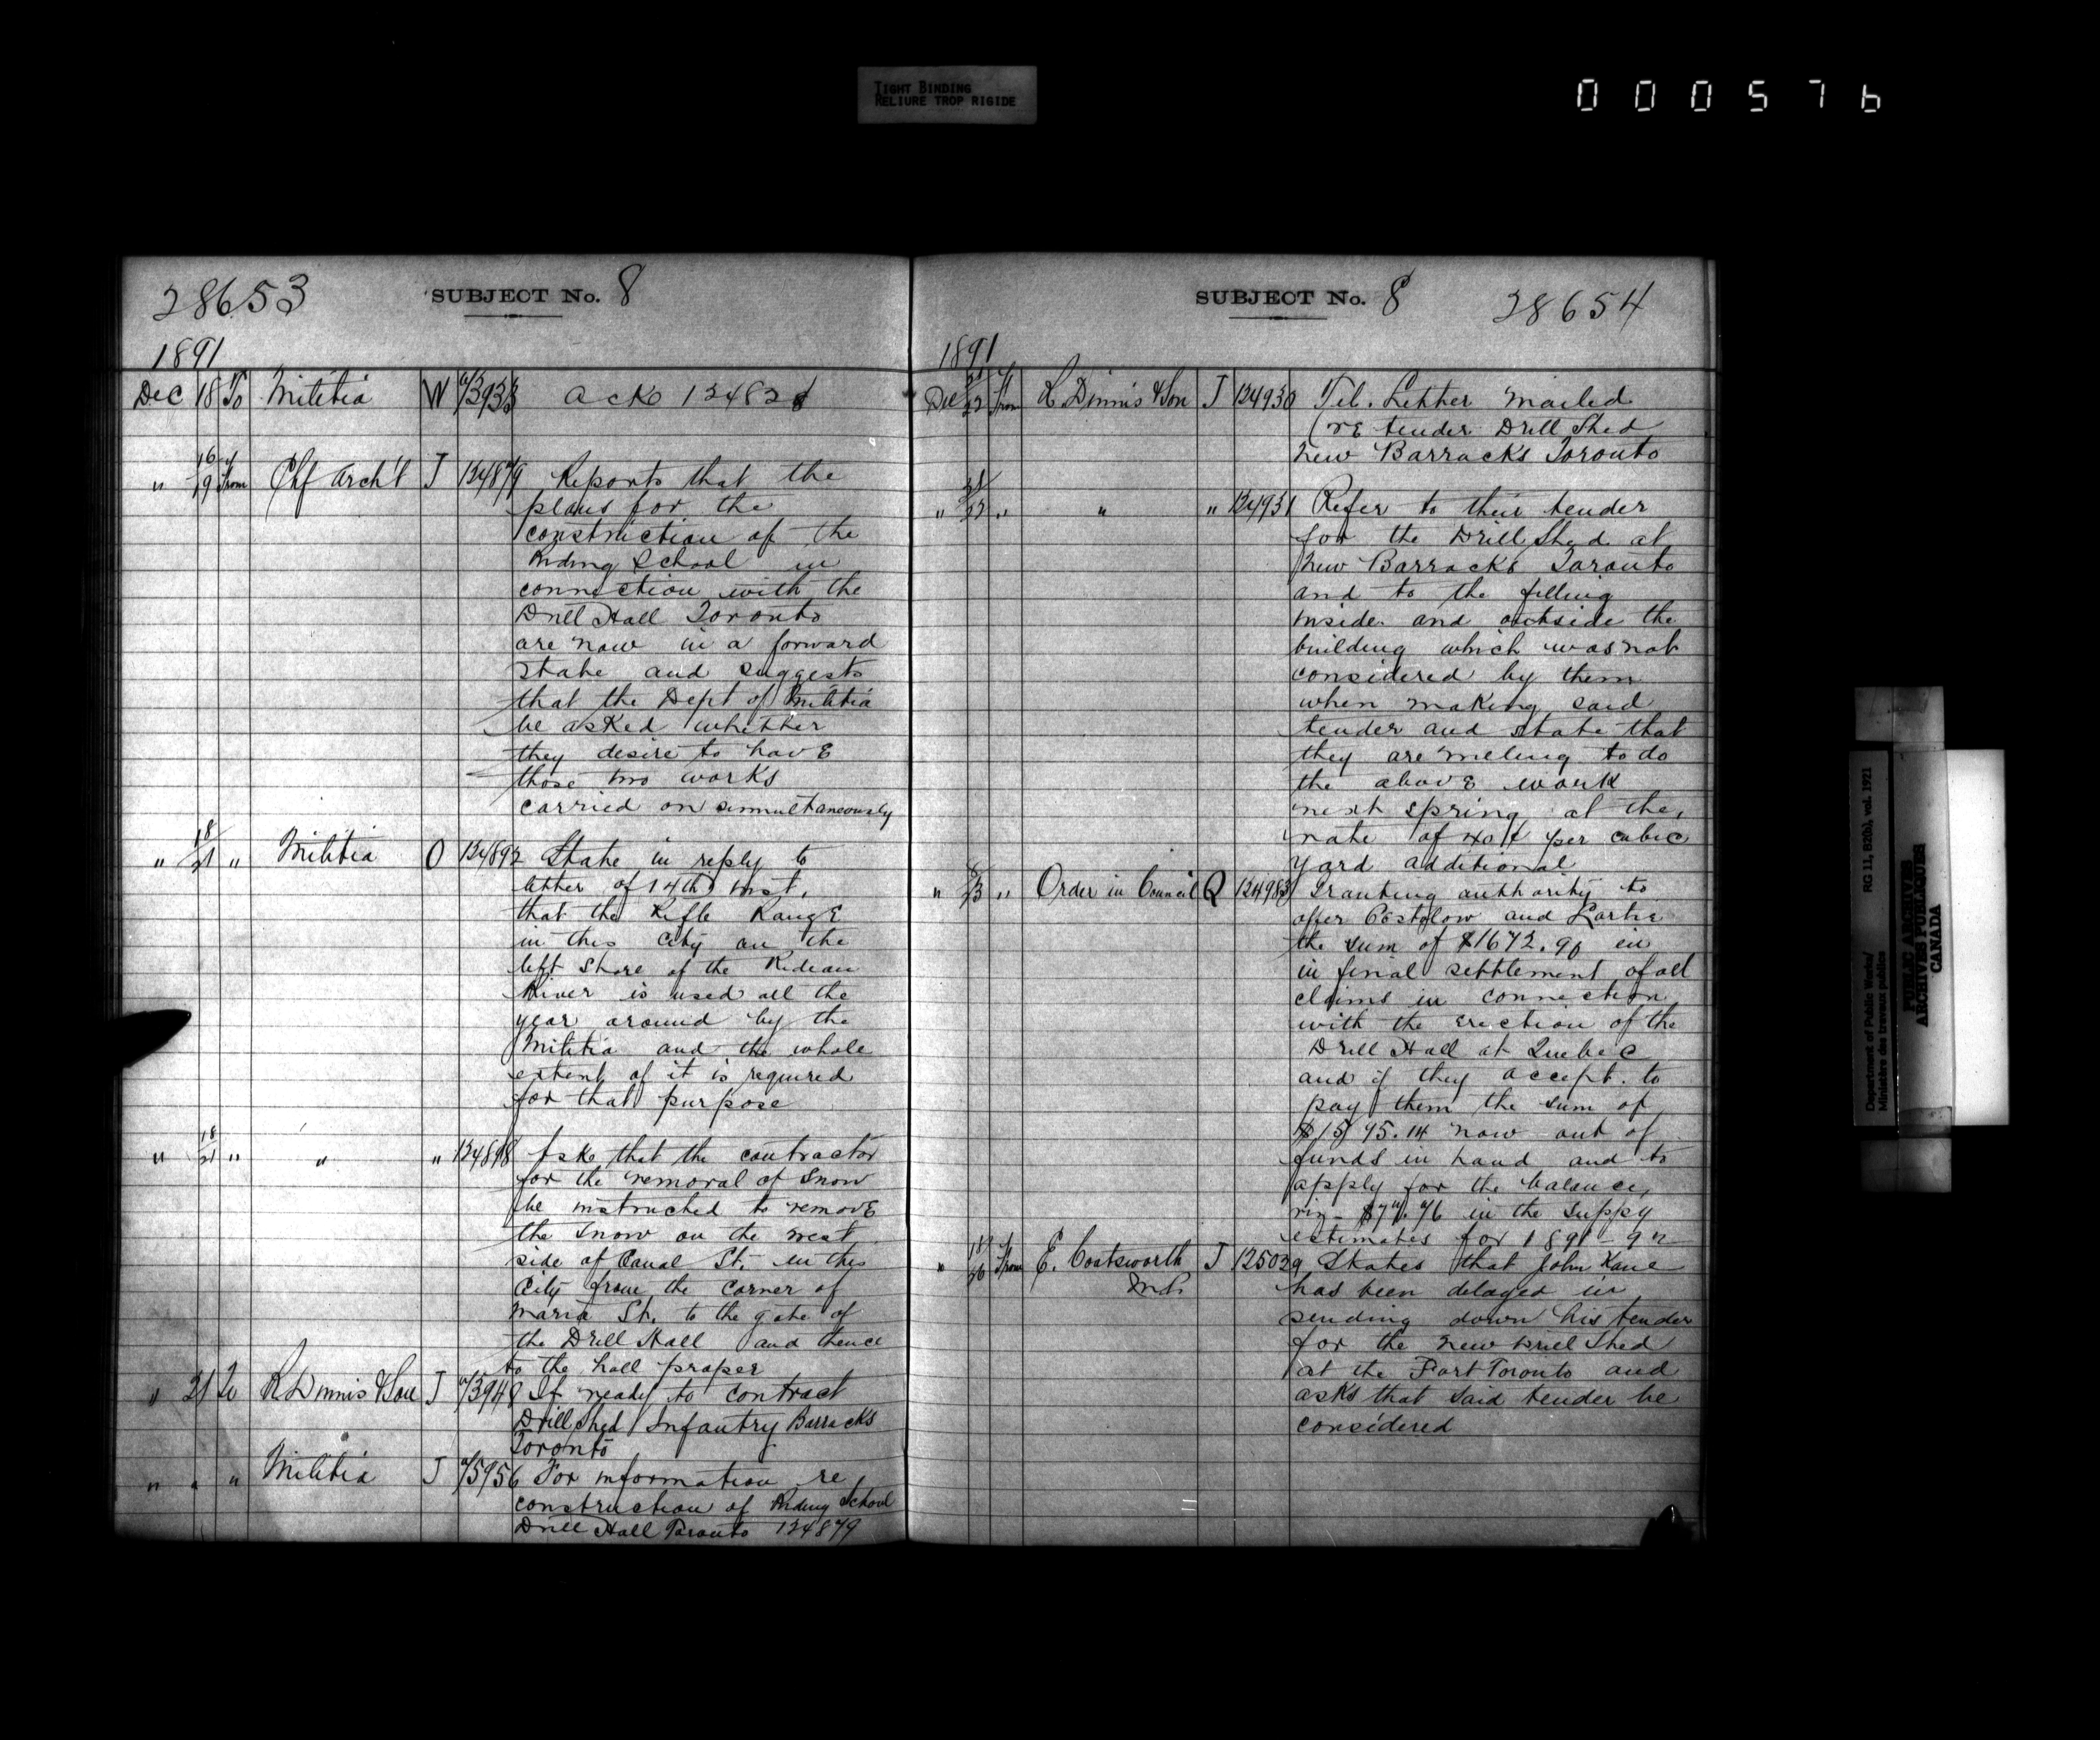 TIGHT BINDING
RELIURE TROP RIGIDE
000576
28653 SUBJECT No. 8
1891
Dec 18 To Militia W Ack 124828
" 16/19 From Chf Arch't J 124879 Reports that the
plans for the
construction of the
Riding School in
connection with the
Drill Hall Toronto
are now in a forward
state and suggests
that the Dept of Militia
be asked whether
they desire to have
those two works
carried on simmultaneously
" 18/21 " Militia O 124892 State in reply to
letter of 14th inst.
that the Rifle Range
in this City on the
left shore of the Rideau
River is used all the
year around by the
Militia and the whole
extent of it is required
for that purpose
" 18/21 " " " 124898 Ask that the contractor
for the removal of Snow
be instructed to remove
the Snow on the west
side of Canal St. in this
City from the corner of
Maria St. to the gate of
the Drill Hall and thence
to the hall proper
" 21 To R Dinnis & Son J 73948 If ready to contract
Drill Shed Infantry Barracks
Toronto
" " " Militia J 75956 For information re
construction of Riding School
Drill Hall Toronto 124879
SUBJECT No. 8 28654
1891
Dec 21/22 From R. Dinnis & Son J 124930 Tel. Letter mailed
re tender Drill Shed
New Barracks Toronto
" 21/22 " " " 124931 Refer to their tender
for the Drill Shed at
New Barracks Toronto
and to the filling
inside and outside the
building which was not
considered by them
when making said
tender and state that
they are willing to do
the above work
next spring at the
rate of 40¢ per cubic
yard additional
" 23 " Order in Council Q 124983 Granting authority to
offer and
the sum of $1672.90 in
in final settlement of all
claims in connection
with the erection of the
Drill Hall at Quebec
and if they accept. to
pay them the sum of
$1595.14 now out of
funds in hand and to
apply for the balance,
viz- $77.76 in the Suppy
estimates for 1891-92
" 18/26 From E. Coatsworth J 125029 States that John Kane
M.P. has been delayed in
sending down his tender
for the new Drill Shed
at the Fort Toronto and
asks that said tender be
considered
Department of Public Works/ RG 11, B2(b), vol. 1921
Ministère des travaux publics
PUBLIC ARCHIVES
ARCHIVES PUBLIQUES
CANADA